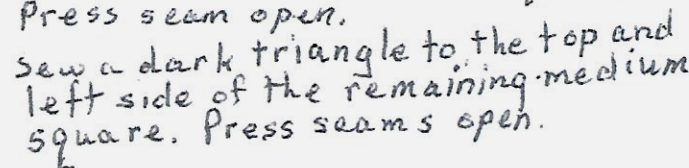 Press seam open.
Sew a dark triangle to the top and
left side of the remaining medium
square. Press seams open.